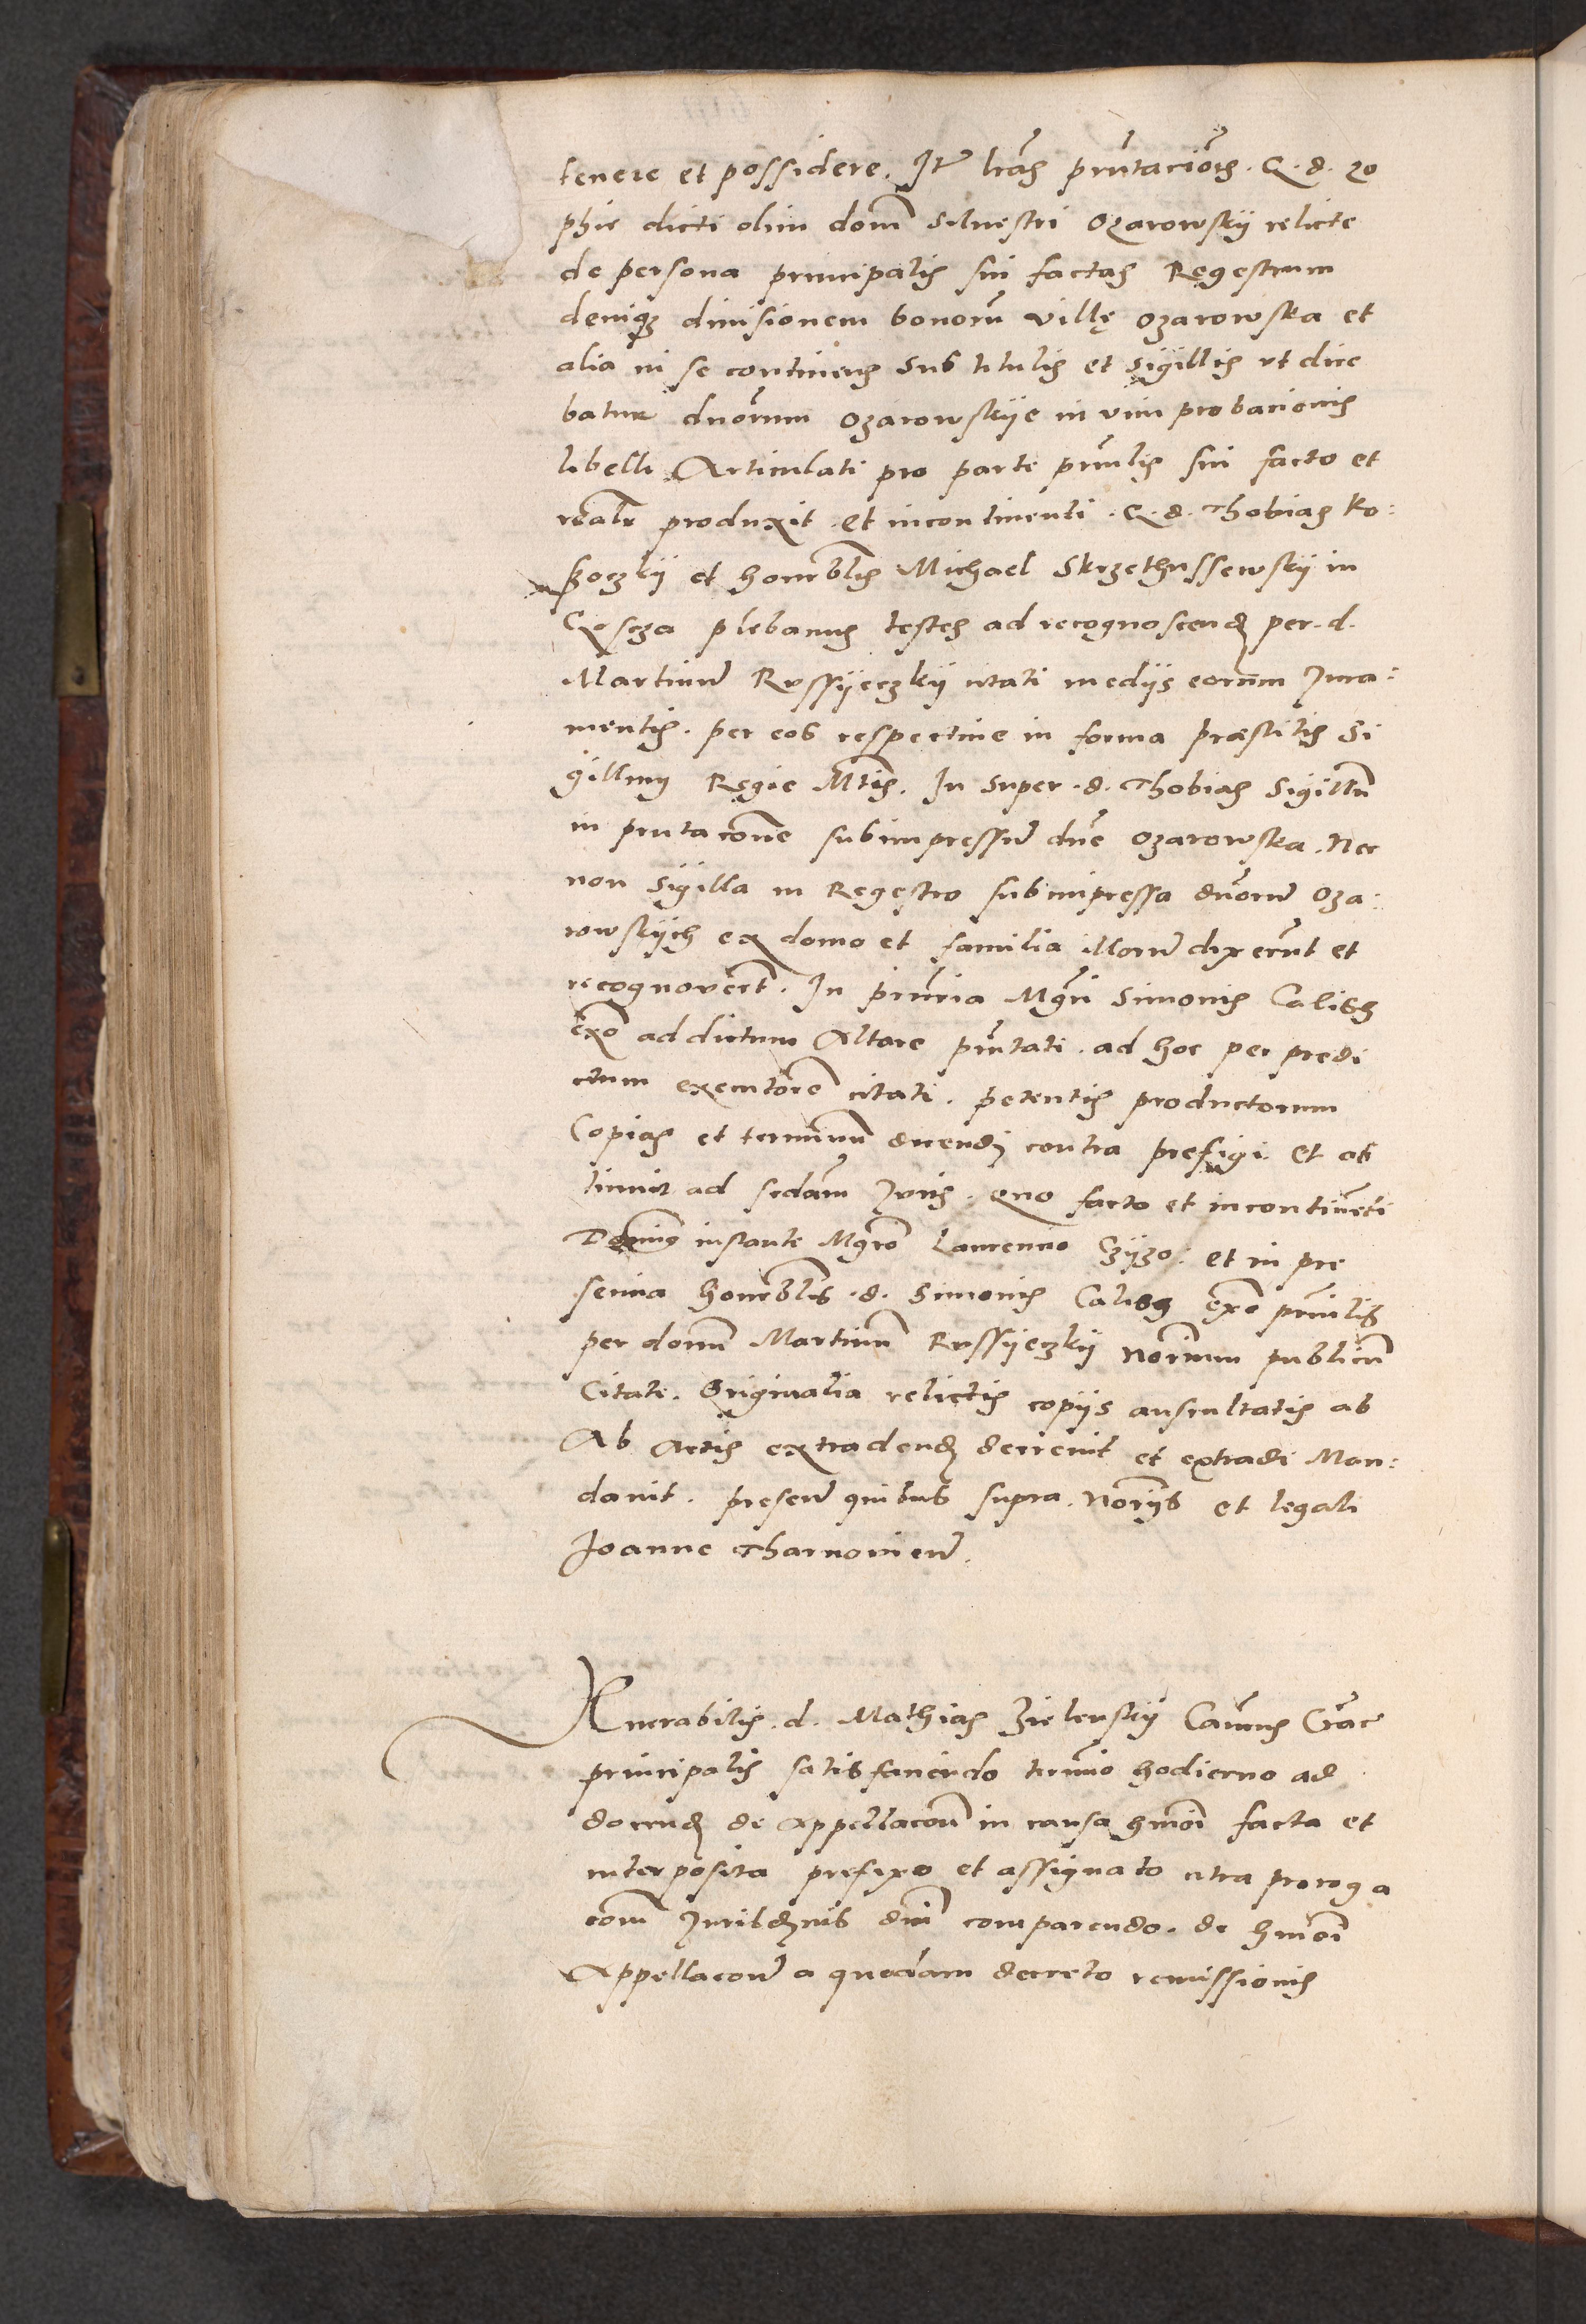 tenere et possidere. Itē lrās prñtaciōis. G. d. Zo
phie dicti olim domī Siluestri Ozarowsky relicte
de persona principalis sui factas Regestrum
deniqȝ diuisionem bonorū villę ozarowska et
alia in se continens Sub titulis et sigillis vt dice
batur dnōrum ozarowskye in vim probacionis
libelli Articulati pro parte prñlis sui facto et
realr produxit. et incontinenti. G. d. Thobias Ko:
koczky et honorblis Michael Skrzethussewsky in
Croscza plebanus testes ad recognoscend per. d.
Martinū Russyeczky citati medijs eorum Jura:
mentis. per eos respectiue in forma præstitis Si
gillum Regie Mtis. In super. d. Thobias Sigillū
in prntacone subimpressū dne ozarowska. Nec
non Sigilla in Regestro subimpressa dnorū Oza:
rowskych ex domo et familia illorū dixerūt et
recognouert. In pñtia Mgri Simonis Calisz
exo ad dictum Altare prñtati. ad hoc per predi
ctum executore citati. petentis productorum
Copias et terminū dicendi contra prefigi. et ob
tinuit ad sedam Juris. quo facto et incontinēti
Dominus instante Mgro Laurencio Czyzo: et in pre
sencia honorblis. d. Simonis Calisz exo prncilis
per domū Martinū Russyeczky Norium publicū
Citati. Originalia relictis copijs auscultatis ab
Ab Actis extradend decreuit et extradi Man:
dauit. presenū quibus supra. Norijs et legali
Joanne Tharnouienī.
Venerabilis. d. Mathias Zielensky Canonus Crac
principalis satisfaciendo termio hodierno ad
docend de Appellacom in causa hmōi facta et
interposita prefixo et assignato citra prorog a
com Jurisdznis dni comparendo. de hmōi
Appellacone a quodam decreto remissionis